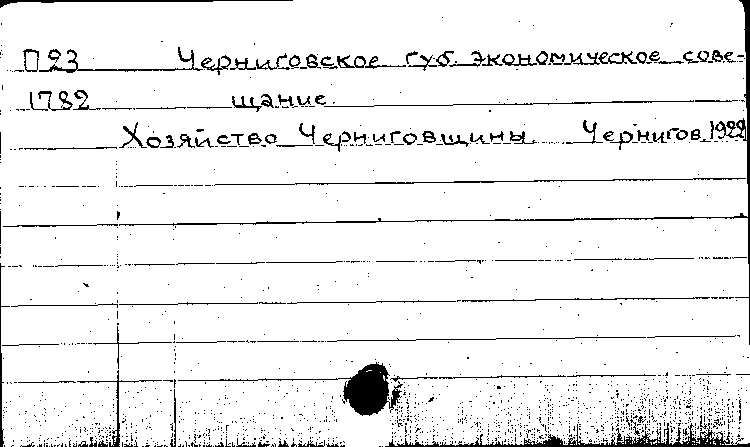 П23 Черниговское губ. экономическое сове-
1782 щание.
Хозяйство Черниговщины. Чернигов, 1922